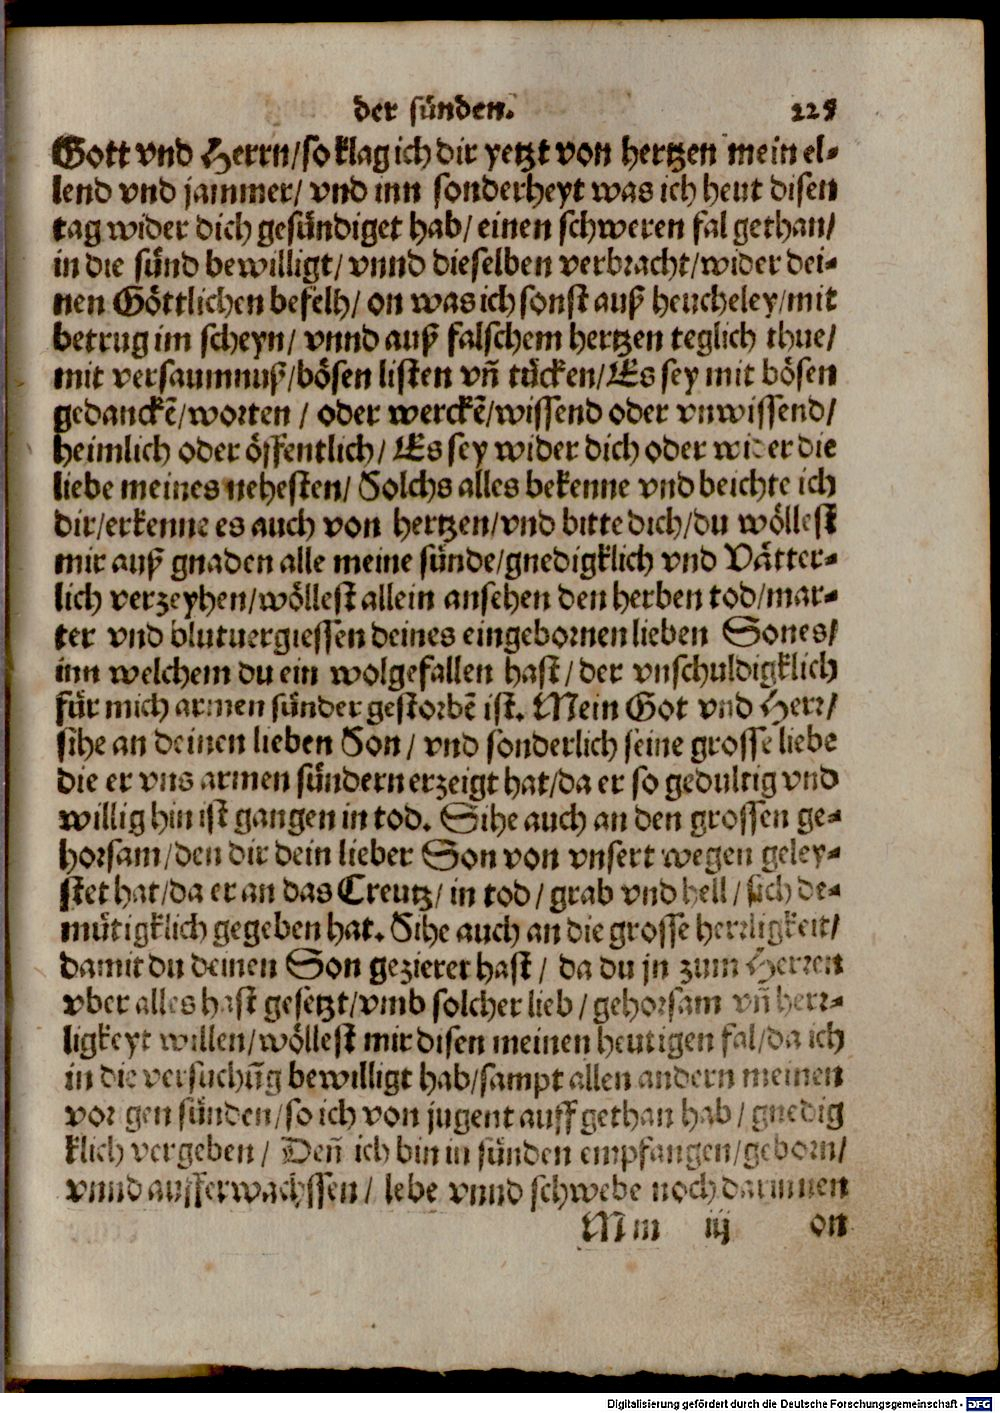 der sünden. 225
Gott vnd Herrn/so klag ich dir yetzt von hertzen mein el-
lend vnd jammer/ vnd inn sonderheyt was ich heut disen
tag wider dich gesündiget hab/ einen schweren fal gethan/
in die sünd bewilligt/ vnnd dieselben verbracht/wider dei-
nen Göttlichen befelh/ on was ich sonst auß heucheley/mit
betrug im scheyn/ vnnd auß falschem hertzen teglich thue/
mit versaumnuß/bösen listen vñ tücken/Es sey mit bösen
gedanckẽ/worten / oder werckẽ/wissend oder vnwissend/
heimlich oder öffentlich/ Es sey wider dich oder wider die
liebe meines nehesten/ Solchs alles bekenne vnd beichte ich
dir/erkenne es auch von hertzen/vnd bitte dich/du wöllest
mir auß gnaden alle meine sünde/gnedigklich vnd Vätter-
lich verzeyhen/wöllest allein ansehen den herben tod/mar-
ter vnd blutuergiessen deines eingebornen lieben Sones/
inn welchem du ein wolgefallen hast/ der vnschuldigklich
für mich armen sünder gestorbẽ ist. Mein Got vnd Herr/
sihe an deinen lieben Son/ vnd sonderlich seine grosse liebe
die er vns armen sündern erzeigt hat/da er so gedultig vnd
willig hin ist gangen in tod. Sihe auch an den grossen ge-
horsam/den dir dein lieber Son von vnsert wegen geley-
stet hat/da er an das Creutz/ in tod/ grab vnd hell/ sich de-
mütigklich gegeben hat. Sihe auch an die grosse herrligkeit/
damit du deinen Son gezieret hast/ da du jn zum Herren
vber alles hast gesetzt/vmb solcher lieb/ gehorsam vñ herr-
ligkeyt willen/wöllest mir disen meinen heutigen fal/da ich
in die versuchũg bewilligt hab/sampt allen andern meinen
vorigen sünden/so ich von jugent auff gethan hab/ gnedig
klich vergeben/ Deñ ich bin in sünden empfangen/geborn/
vnnd aufferwachssen/ lebe vnnd schwebe noch darinnen
Mm iij on
Digitalisierung gefördert durch die Deutsche Forschungsgemeinschaft - DFG